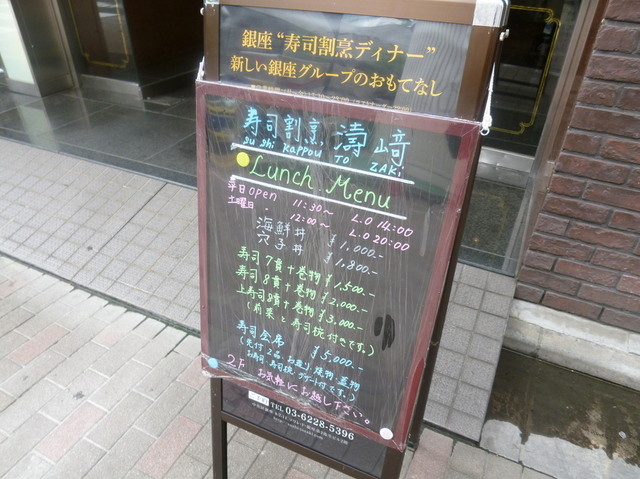 銀座 “寿司割烹ディナー”
新しい銀座グループのおもてなし
寿司割烹 濤﨑
sushi kappou TO ZAKi
Lunch Menu
平日 open 11:30〜 L.O 14:00
土曜日 〃 12:00〜 L.O 20:00
海鮮丼 ¥1,000.-
穴子丼 ¥1,800.-
寿司7貫+巻物 ¥1,500.-
寿司8貫+巻物 ¥2,000.-
上寿司8貫+巻物 ¥3,000.-
(前菜と寿司椀付きです。)
寿司会席 ¥5,000.-
2F お気軽にお越し下さい。
TEL 03-6228-5396